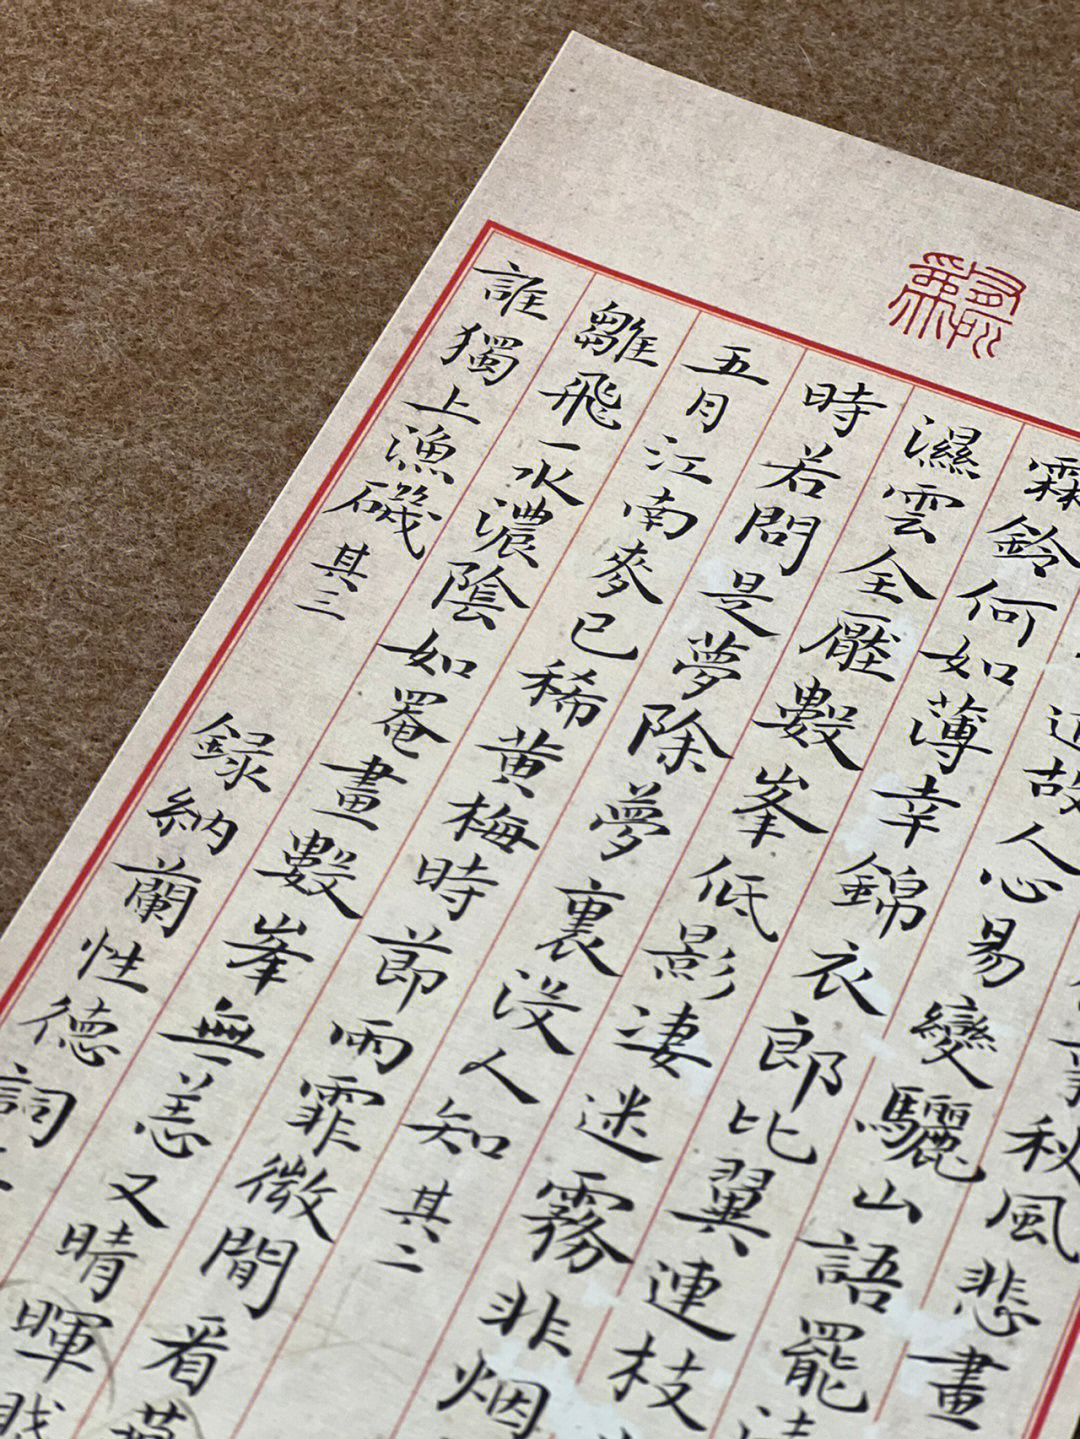 事秋風悲畫
故人心易變驪山語罷清
霖鈴何如薄幸錦衣郎比翼連枝
濕雲全壓數峯低影淒迷霧非烟
時若問是夢除夢裏沒人知 其二
五月江南麥已稀黄梅時節雨霏微閒看燕
雛飛一水濃陰如罨畫數峯無恙又晴暉
誰獨上漁磯 其三 録納蘭性德詞